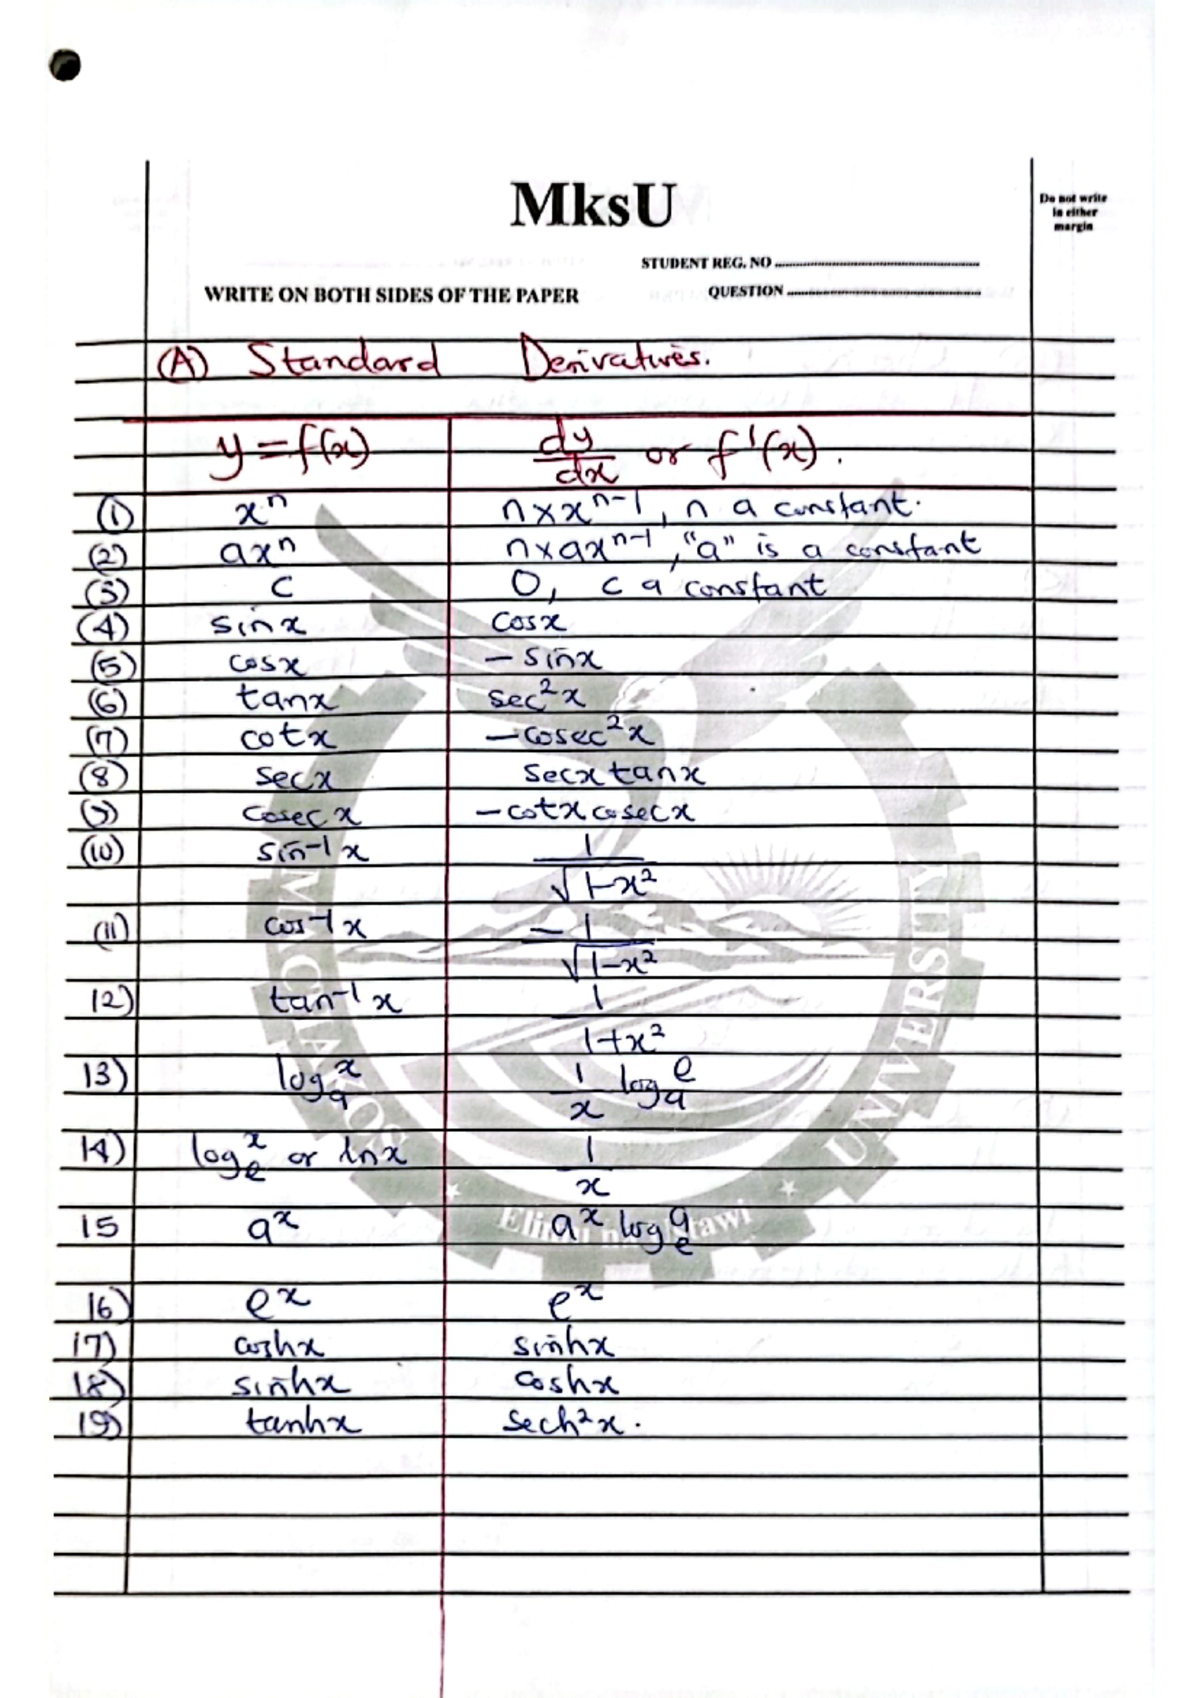 MksU
Do not write
in either
margin
STUDENT REG. NO
WRITE ON BOTH SIDES OF THE PAPER
QUESTION
(A) Standard Derivatives.
y = f(x) dy/dx or f'(x).
(1) xⁿ n×xⁿ⁻¹, n a constant.
(2) axⁿ n×axⁿ⁻¹, "a" is a constant
(3) c 0, c a constant
(4) sinx cosx
(5) cosx − sinx
(6) tanx sec²x
(7) cotx −cosec²x
(8) secx secx tanx
(9) cosec x −cotx cosecx
(10) sin⁻¹x 1/√(1−x²)
(11) cos⁻¹x −1/√(1−x²)
12) tan⁻¹x 1/(1+x²)
13) logₐx 1/x logₐe
14) logₑx or lnx 1/x
15 aˣ aˣ logₑa
16) eˣ eˣ
17) coshx sinhx
18) sinhx coshx
19) tanhx sech²x.
MACHAKOS UNIVERSITY